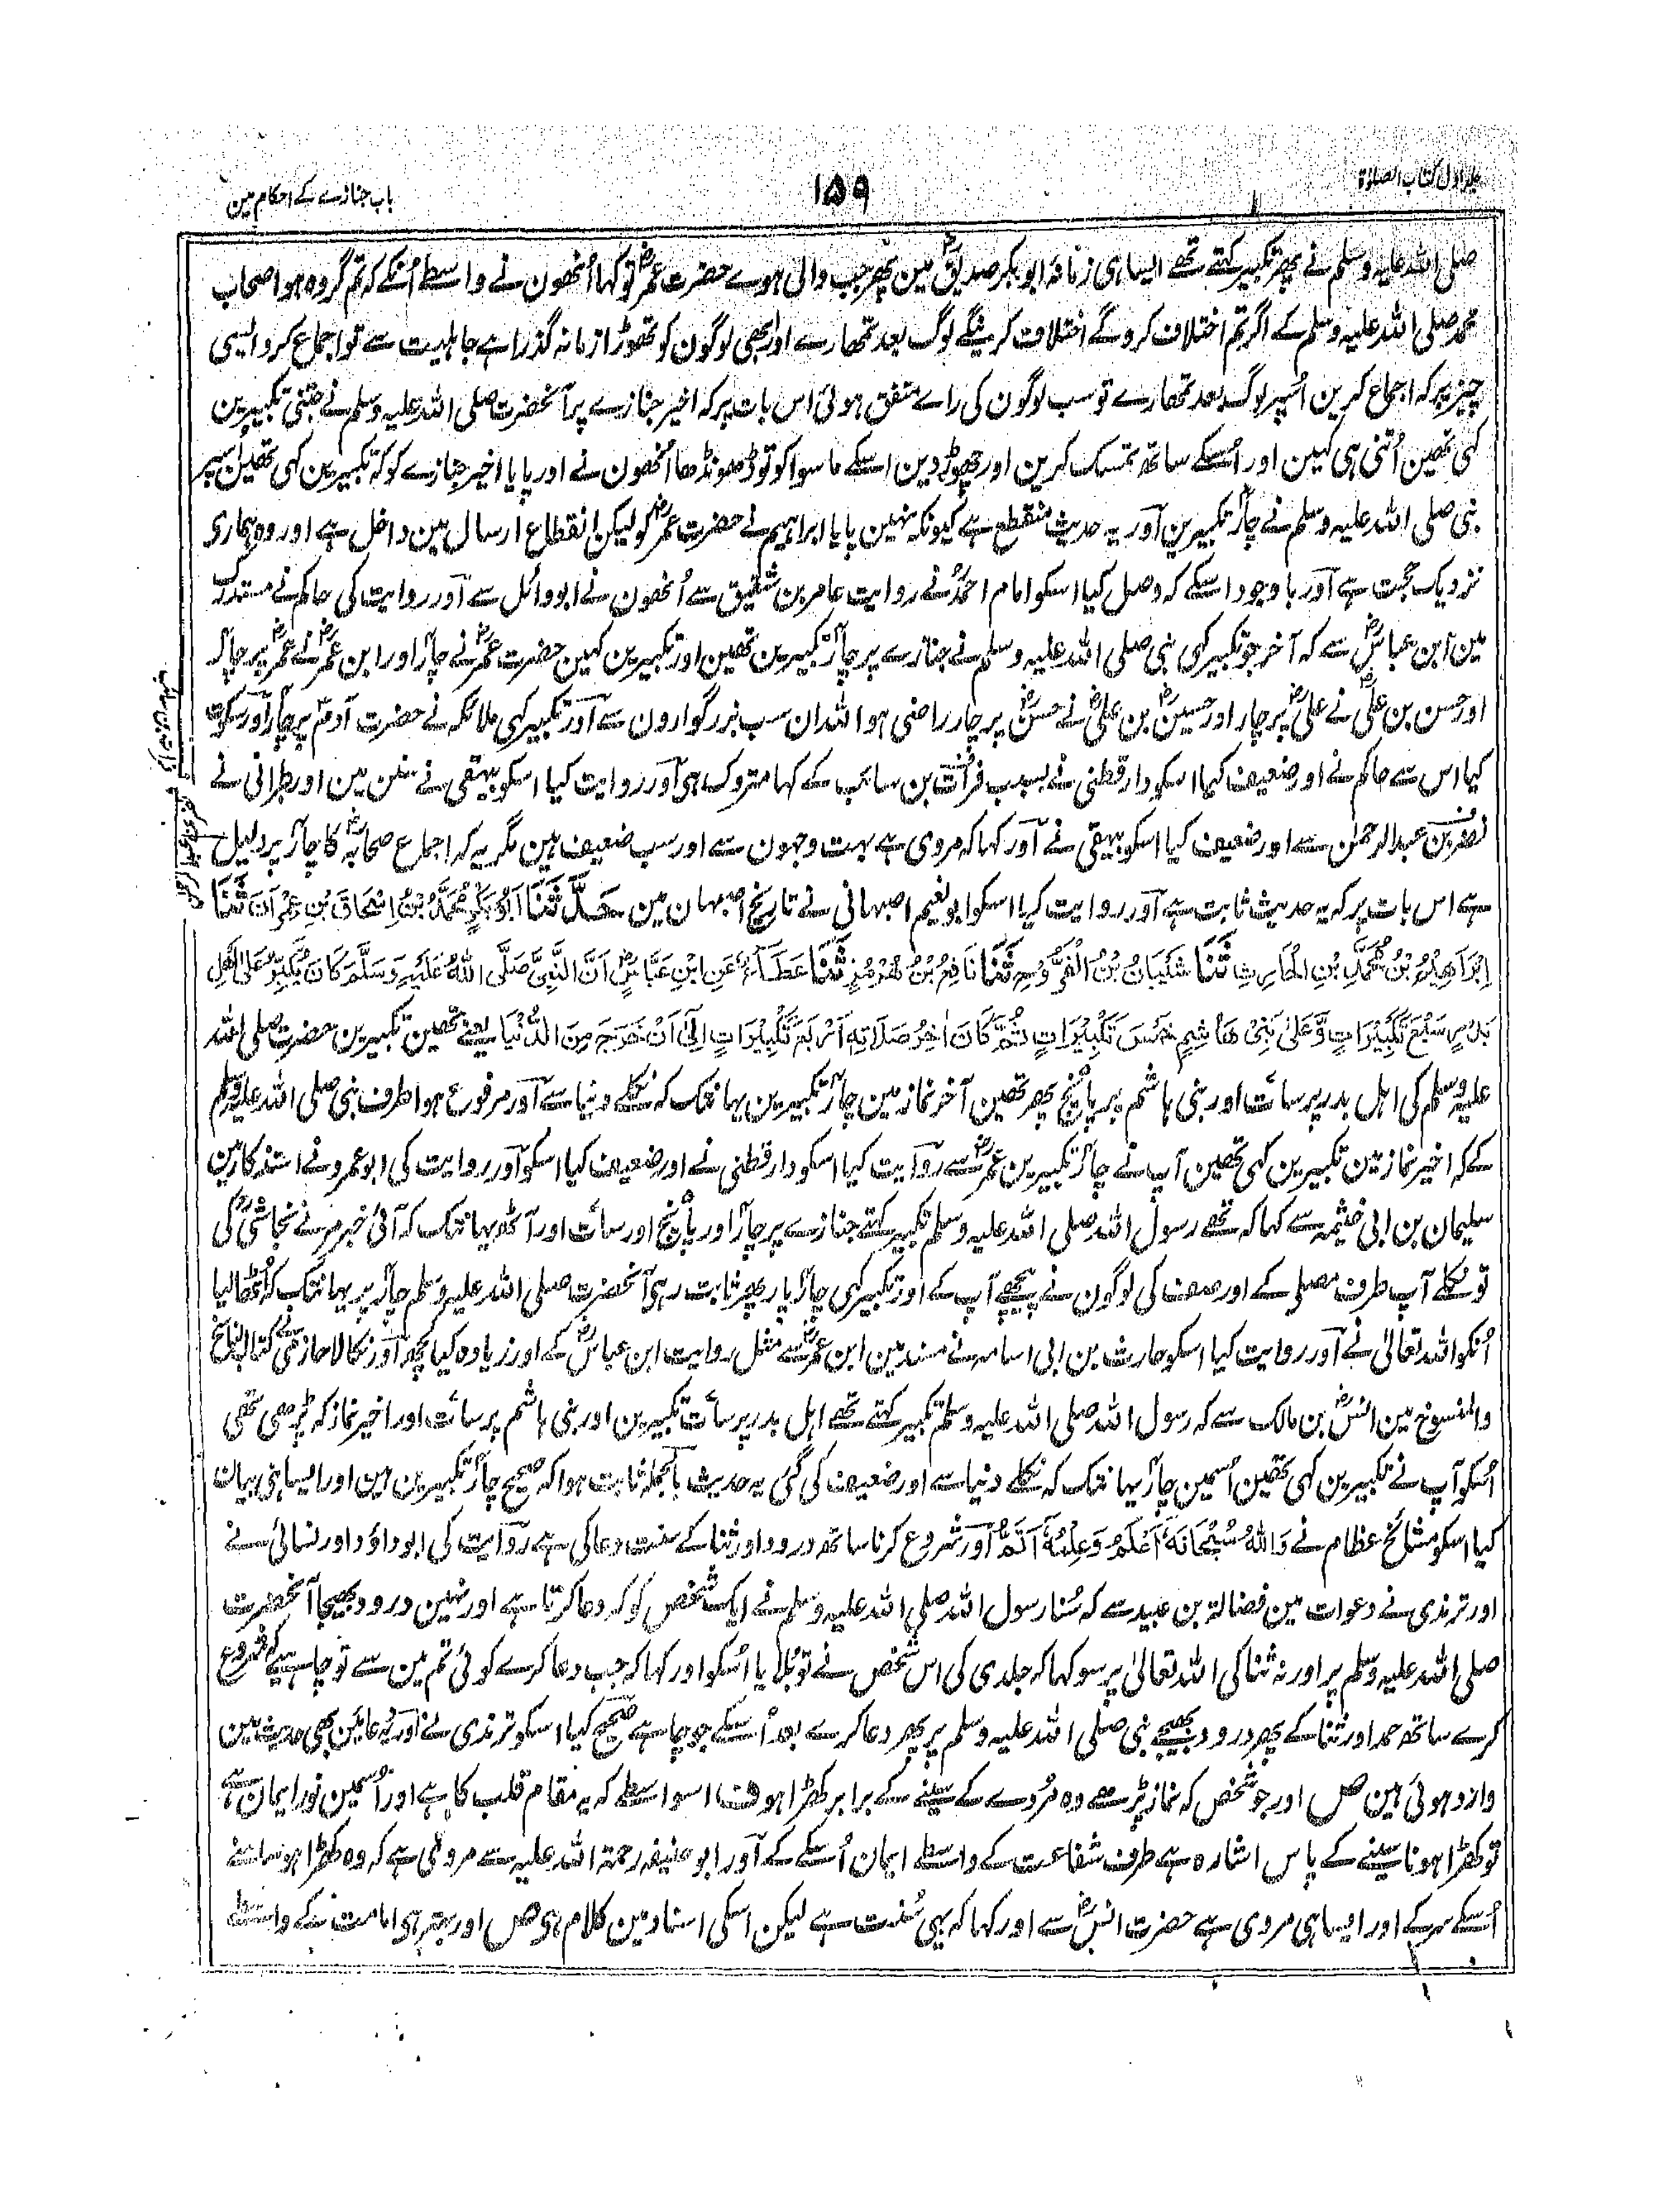 جلد اول کتاب الصلوٰۃ
۱۵۹
باب جنازے کے احکام مین
صلی اللہ علیہ وسلم نے پھر تکبیر کہتے تھے ایسا ہی زمانہ ابو بکر صدیقؓ مین پھر جب والی ہوے حضرت عمرؓ تو کہا اُنھون نے واسطے اُنکے کہ تم گروہ ہو اصحاب
محمد صلی اللہ علیہ وسلم کے اگر تم اختلاف کروگے اختلاف کرینگے لوگ بعد تمھارے اور ابھی لوگون کو تھوڑا زمانہ گذرا ہے جاہلیت سے تو اجماع کرو ایسی
چیز پر کہ اجماع کرین اُسپر لوگ بعد تمھارے تو سب لوگون کی راے متفق ہوئی اس بات پر کہ اخیر جنازے پر آنحضرت صلی اللہ علیہ وسلم نے جتنی تکبیرین
کہی تھین اُتنی ہی کہین اور اُسکے ساتھ تمسک کرین اور چھوڑ دین اسکے ماسوا کو تو ڈھونڈھا اُنھون نے اور پایا اخیر جنازے کو کہ تکبیرین کہی تھین اُسپر
نبی صلی اللہ علیہ وسلم نے چار تکبیرین آور یہ حدیث منقطع ہے کیونکہ نہین پایا ابراہیم نے حضرت عمرؓ کو لیکن انقطاع ارسال مین داخل ہے اور وہ ہماری
نزدیک حجت ہے آور باوجود اسکے کہ وصل کیا اسکو امام احمدؒ نے روایت عامر بن شقیق سے اُنھون نے ابو وائل سے آور روایت کی حاکم نے مستدرک
مین ابن عباسؓ سے کہ آخر جو تکبیر کہی نبی صلی اللہ علیہ وسلم نے جنازے پر چار تکبیرین تھین اور تکبیرین کہین حضرت عمرؓ نے چار اور ابن عمرؓ نے عمرؓ پر چار
اور حسن بن علیؓ نے علیؓ پر چار اور حسینؓ بن علیؓ نے حسنؓ پر چار راضی ہو اللہ ان سب بزرگوارون سے آور تکبیر کہی ملائکہ نے حضرت آدمؑ پر چار آور سکوت
کیا اس سے حاکم نے اور ضعیف کہا اسکو دارقطنی نے بسبب فرات بن سائب کے کہا متروک ہی آور روایت کیا اسکو بیہقی نے سنن مین اور طبرانی نے
نضر بن عبد الرحمٰن سے اور ضعیف کیا اسکو بیہقی نے آور کہا کہ مروی ہے بہت وجہون سے اور سب ضعیف ہین مگر یہ کہ اجماع صحابہؓ کا چار پر دلیل
ہے اس بات پر کہ یہ حدیث ثابت ہے آور روایت کیا اسکو ابو نعیم اصبہانی نے تاریخ اصبہان مین حَدَّثَنَا اَبُوْبَکْرٍ مُحَمَّدُ بْنُ اِسْحَاقَ بْنِ عِمْرَانَ ثَنَا
اِبْرَاهِیْمُ بْنُ مُحَمَّدِ بْنِ الْحَارِثِ ثَنَا شَیْبَانُ بْنُ الْفَرُّوْخِ ثَنَا نَافِعُ بْنُ هُرْمُزٍ ثَنَا عَطَآءٌ عَنِ ابْنِ عَبَّاسٍؓ اَنَّ النَّبِیَّ صَلَّی اللهُ عَلَیْهِ وَسَلَّمَ کَانَ یُکَبِّرُ عَلٰی اَهْلِ
بَدْرٍ سَبْعَ تَکْبِیْرَاتٍ وَّعَلٰی بَنِیْ هَاشِمٍ خَمْسَ تَکْبِیْرَاتٍ ثُمَّ کَانَ اٰخِرُ صَلَاتِهِ اَرْبَعَ تَکْبِیْرَاتٍ اِلٰی اَنْ خَرَجَ مِنَ الدُّنْیَا یعنے تھین تکبیرین حضرت صلی اللہ
علیہ وسلم کی اہل بدر پر سات اور بنی ہاشم پر پانچ پھر تھین آخر نماز مین چار تکبیرین یہانتک کہ نکلے دنیا سے آور مرفوع ہوا طرف نبی صلی اللہ علیہ وسلم
کے کہ اخیر نماز مین تکبیرین کہی تھین آپ نے چار تکبیرین عمرؓ سے روآیت کیا اسکو دارقطنی نے اور ضعیف کیا اسکو آور روایت کی ابو عمرو نے استذکار مین
سلیمان بن ابی خثیمہ سے کہا کہ تھے رسول اللہ صلی اللہ علیہ وسلم تکبیر کہتے جنازے پر چار اور پانچ اور سات اور آٹھ یہانتک کہ آئی خبر مرنے نجاشیؓ کی
تو نکلے آپ طرف مصلی کے اور صف کی لوگون نے پیچھے آپ کے اور تکبیر کہی چار بار پھر ثابت رہی آنحضرت صلی اللہ علیہ وسلم چار پر یہانتک کہ اُٹھالیا
اُنکو اللہ تعالیٰ نے آور روایت کیا اسکو حارث بن ابی اسامہ نے مسند مین ابن عمرؓ سے مثل روایت ابن عباسؓ کے اور زیادہ کیا کچھ آور نکالا حازمی نے کتاب الناسخ
والمنسوخ مین انسؓ بن مالک سے کہ رسول اللہ صلی اللہ علیہ وسلم تکبیر کہتے تھے اہل بدر پر سات تکبیرین اور بنی ہاشم پر سات اور اخیر نماز کہ پڑھی تھی
اُسکو آپ نے تکبیرین کہی تھین اُسمین چار یہانتک کہ نکلے دنیا سے اور ضعیف کی گئی یہ حدیث بالجملہ ثابت ہوا کہ صحیح چار تکبیرین ہین اور ایسا ہی بیان
کیا اسکو مشائخ عظام نے وَاللهُ سُبْحَانَهٗ اَعْلَمُ وَعِلْمُهٗ اَتَمُّ آور شروع کرنا ساتھ درود اور ثنا کے سنت دعا کی ہے روآیت کی ابوداؤد اور نسائی نے
اور ترمذی نے دعوات مین فضالۃ بن عبید سے کہ سُنا رسول اللہ صلی اللہ علیہ وسلم نے ایک شخص کو کہ دعا کرتا ہے اور نہین درود بھیجا آنحضرت
صلی اللہ علیہ وسلم پر اور نہ ثنا کی اللہ تعالیٰ پر سو کہا کہ جلدی کی اس شخص نے تو بُلایا اُسکو اور کہا کہ جب دعا کرے کوئی تم مین سے تو چاہیے کہ شروع
کرے ساتھ حمد اور ثنا کے پھر درود بھیجے نبی صلی اللہ علیہ وسلم پر پھر دعا کرے بعد اُسکے جو چاہے صحیح کیا اسکو ترمذی نے آور یہ دعائین بھی حدیث مین
وارد ہوئی ہین ص اور جو شخص کہ نماز پڑھے وہ مُردے کے سینے کے برابر کھڑا ہو ف اسواسطے کہ یہ مقام قلب کا ہے اور اُسمین نور ایمان ہے
تو کھڑا ہونا سینے کے پاس اشارہ ہے طرف شفاعت کے واسطے ایمان اُسکے کے آور ابو حنیفہ رحمۃ اللہ علیہ سے مروی ہے کہ وہ کھڑا ہو سامنے
اُسکے سر کے اور ایسا ہی مروی ہے حضرت انسؓ سے اور کہا کہ یہی سُنت ہے لیکن اسکی اسناد مین کلام ہی ص اور بہتر ہی امامت کے واسطے